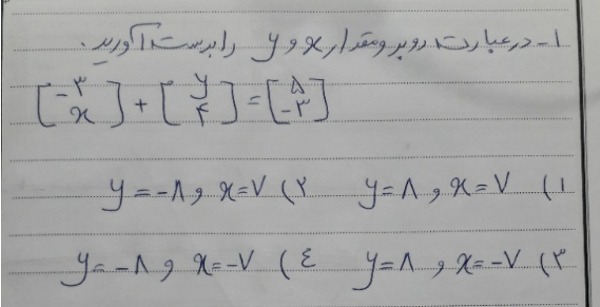 ۱- در عبارت روبرو مقدار x و y را بدست آورید.
[-۳ x] + [y ۴] = [۵ -۳]
۱) y=۸ , x=۷ ۲) y=-۸ , x=۷
۳) y=۸ , x=-۷ ٤) y=-۸ و x=-۷